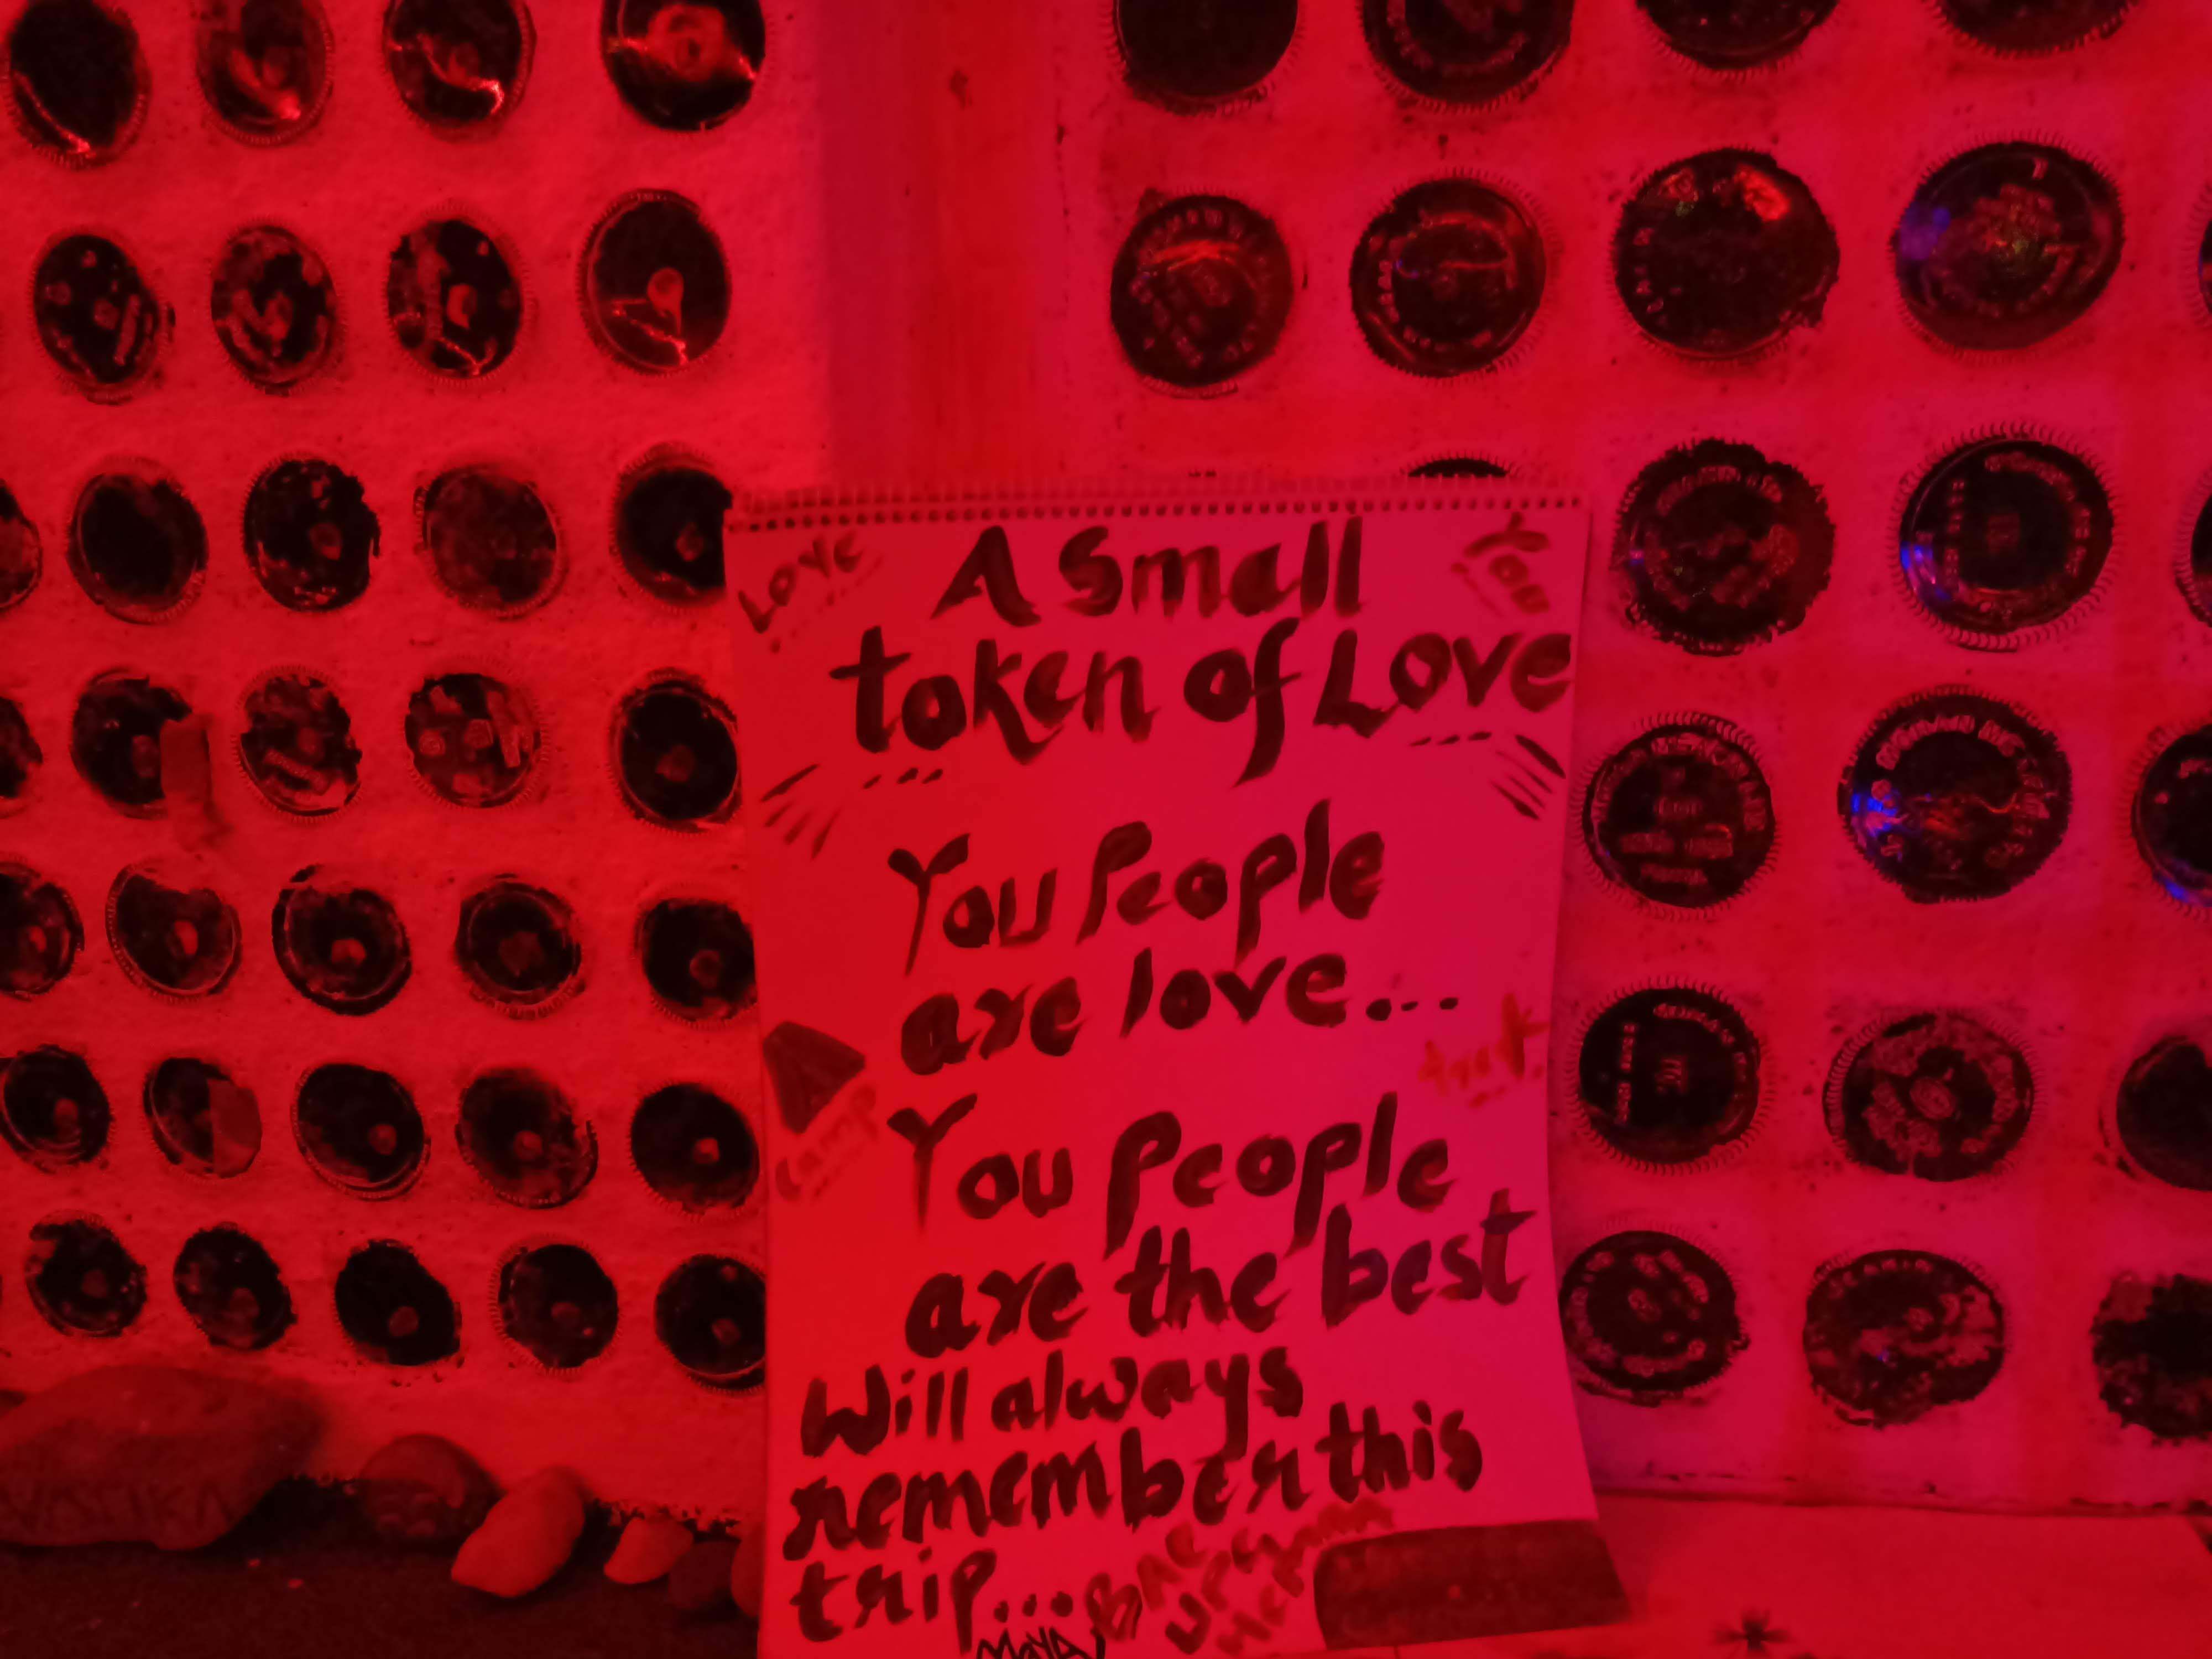 Love
You
A Small
token of Love
You People
are love...
trek
camp
You People
are the best
Will always
remember this
trip...
MAYA